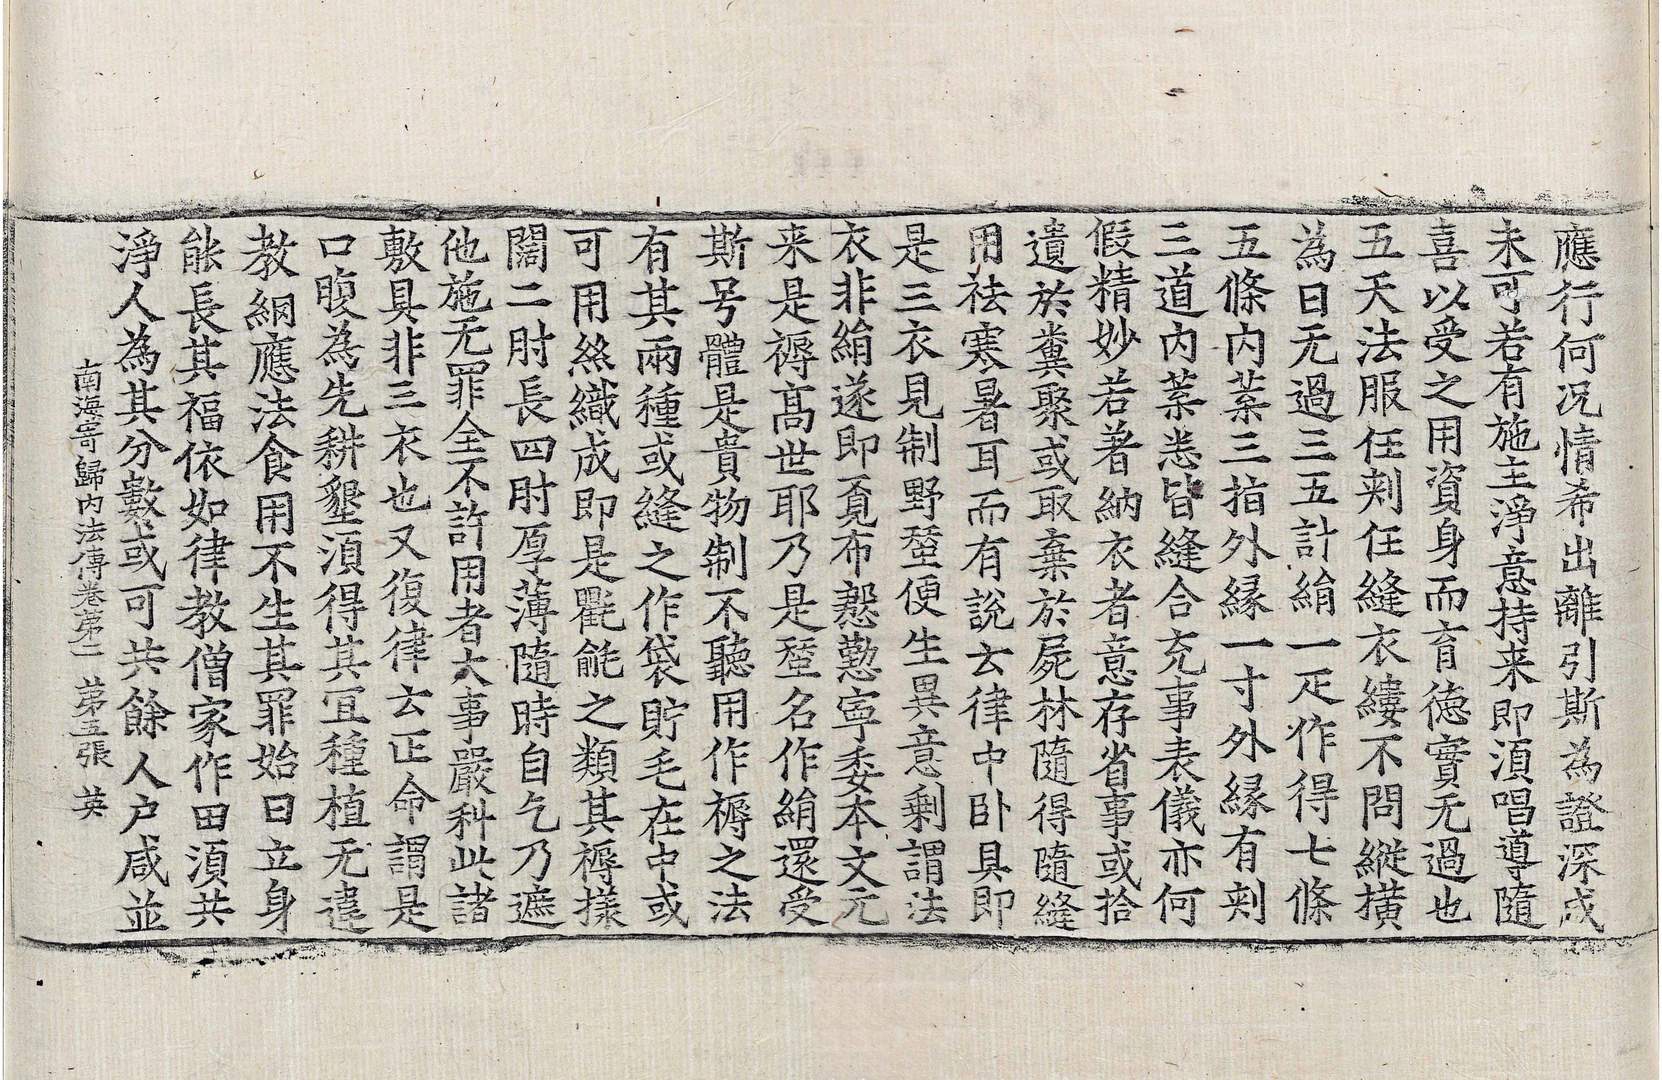 應行何况情希出離引斯為證深成
未可若有施主淨意持来即湏唱導隨
喜以受之用資身而育德實无過也
五天法服任刾任縫衣縷不問縱撗
為日无過三五計絹一疋作得七條
五條内葉三指外緣一寸外緣有刾
三道内葉悉皆縫合充事表儀亦何
假精妙若著納衣者意存省事或拾
遺於糞聚或取棄於屍林隨得隨縫
用祛寒暑耳而有說云律中卧具即
是三衣見制野蚕便生異意剩謂法
衣非絹遂即覔布慇懃寧委本文元
来是褥髙世耶乃是蚕名作絹還受
斯号體是貴物制不聽用作褥之法
有其兩種或縫之作袋貯毛在中或
可用絲織成即是氍毹之類其褥樣
闊二肘長四肘厚薄隨時自乞乃遮
他施无罪全不許用者大事嚴科此諸
敷具非三衣也又復律云正命謂是
口腹為先耕墾湏得其冝種植无違
教網應法食用不生其罪始曰立身
能長其福依如律教僧家作田湏共
淨人為其分數或可共餘人户咸並
南海寄歸内法傳卷第二 第五張 英